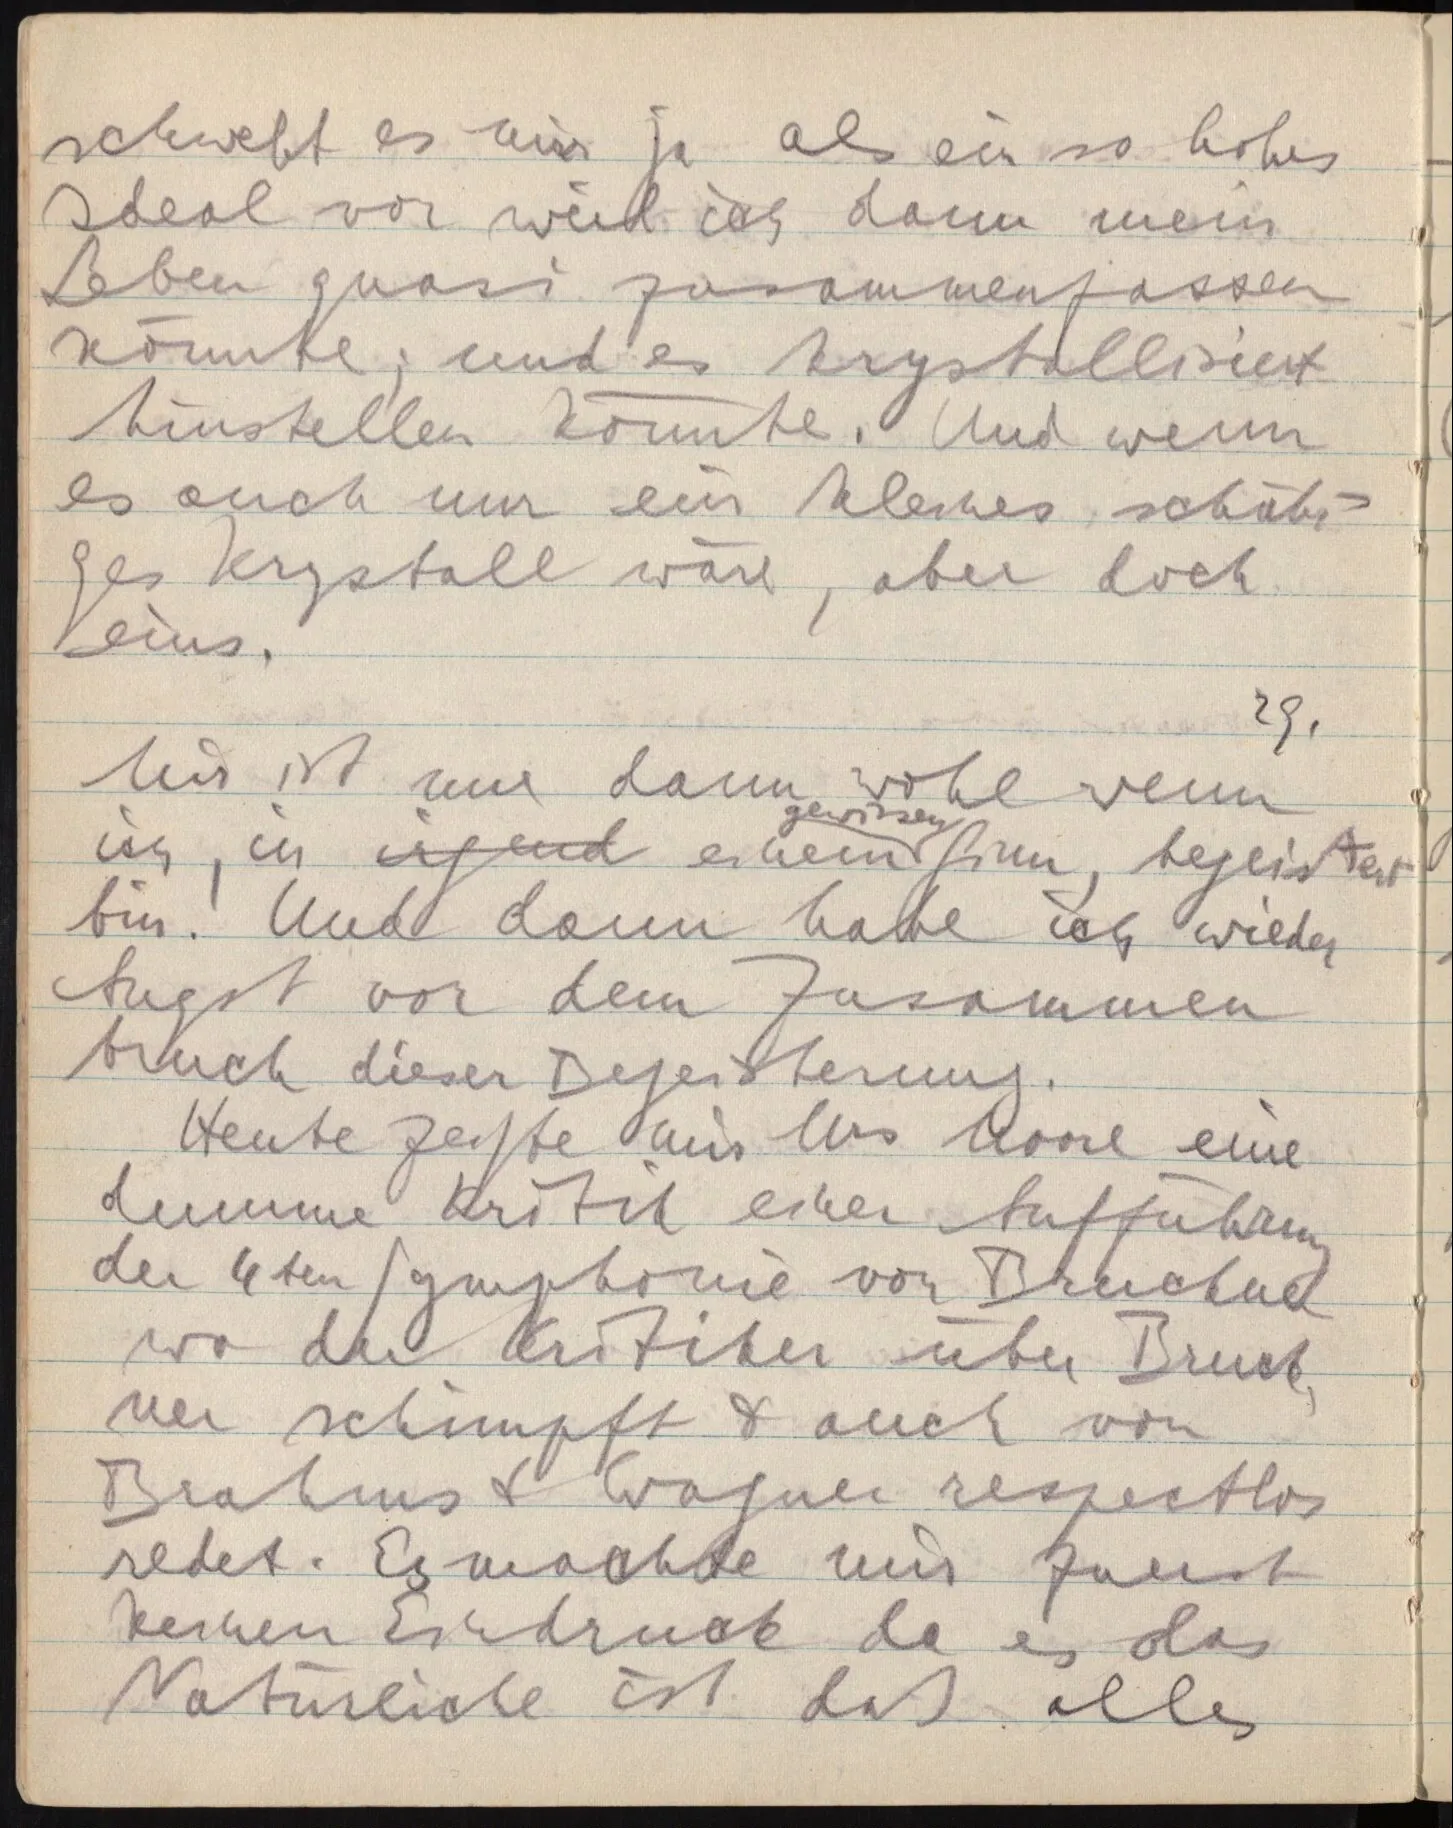 schwebt es mir ja als ein so hohes
Ideal vor weil ich dann mein
Leben quasi zusammenfassen
könnte; und es krystallisiert
hinstellen könnte. Und wenn
es auch nur ein kleines, schäbi-
ges Krystall wäre, aber doch
eins.
29.
Mir ist nur dann wohl wenn
gewissen
ich, in irgend einem Sinn, begeistert
bin! Und dann habe ich wieder
Angst vor dem Zusammen
bruch dieser Begeisterung.
Heute zeigte mir Mrs Moore eine
dumme Kritik einer Aufführung
der 4ten Symphonie von Bruckner
wo der Kritiker über Bruck
ner schimpft & auch von
Brahms & Wagner respectlos
redet. Es machte mir zuerst
keinen Eindruck da es das
Natürliche ist daß alles